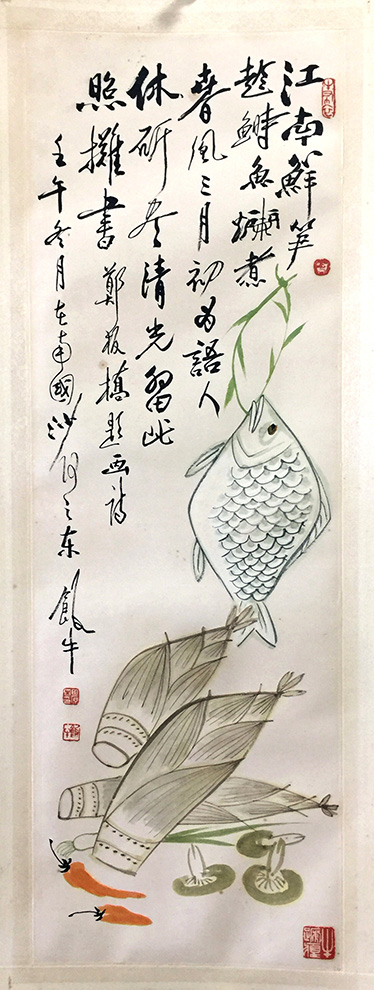 江南鮮笋
趁鰣魚爛煮
春風三月初为語人
休斫尽清光留此
照攤書 鄭板橋題画詩
壬午冬月在南國沙河之东 飯牛